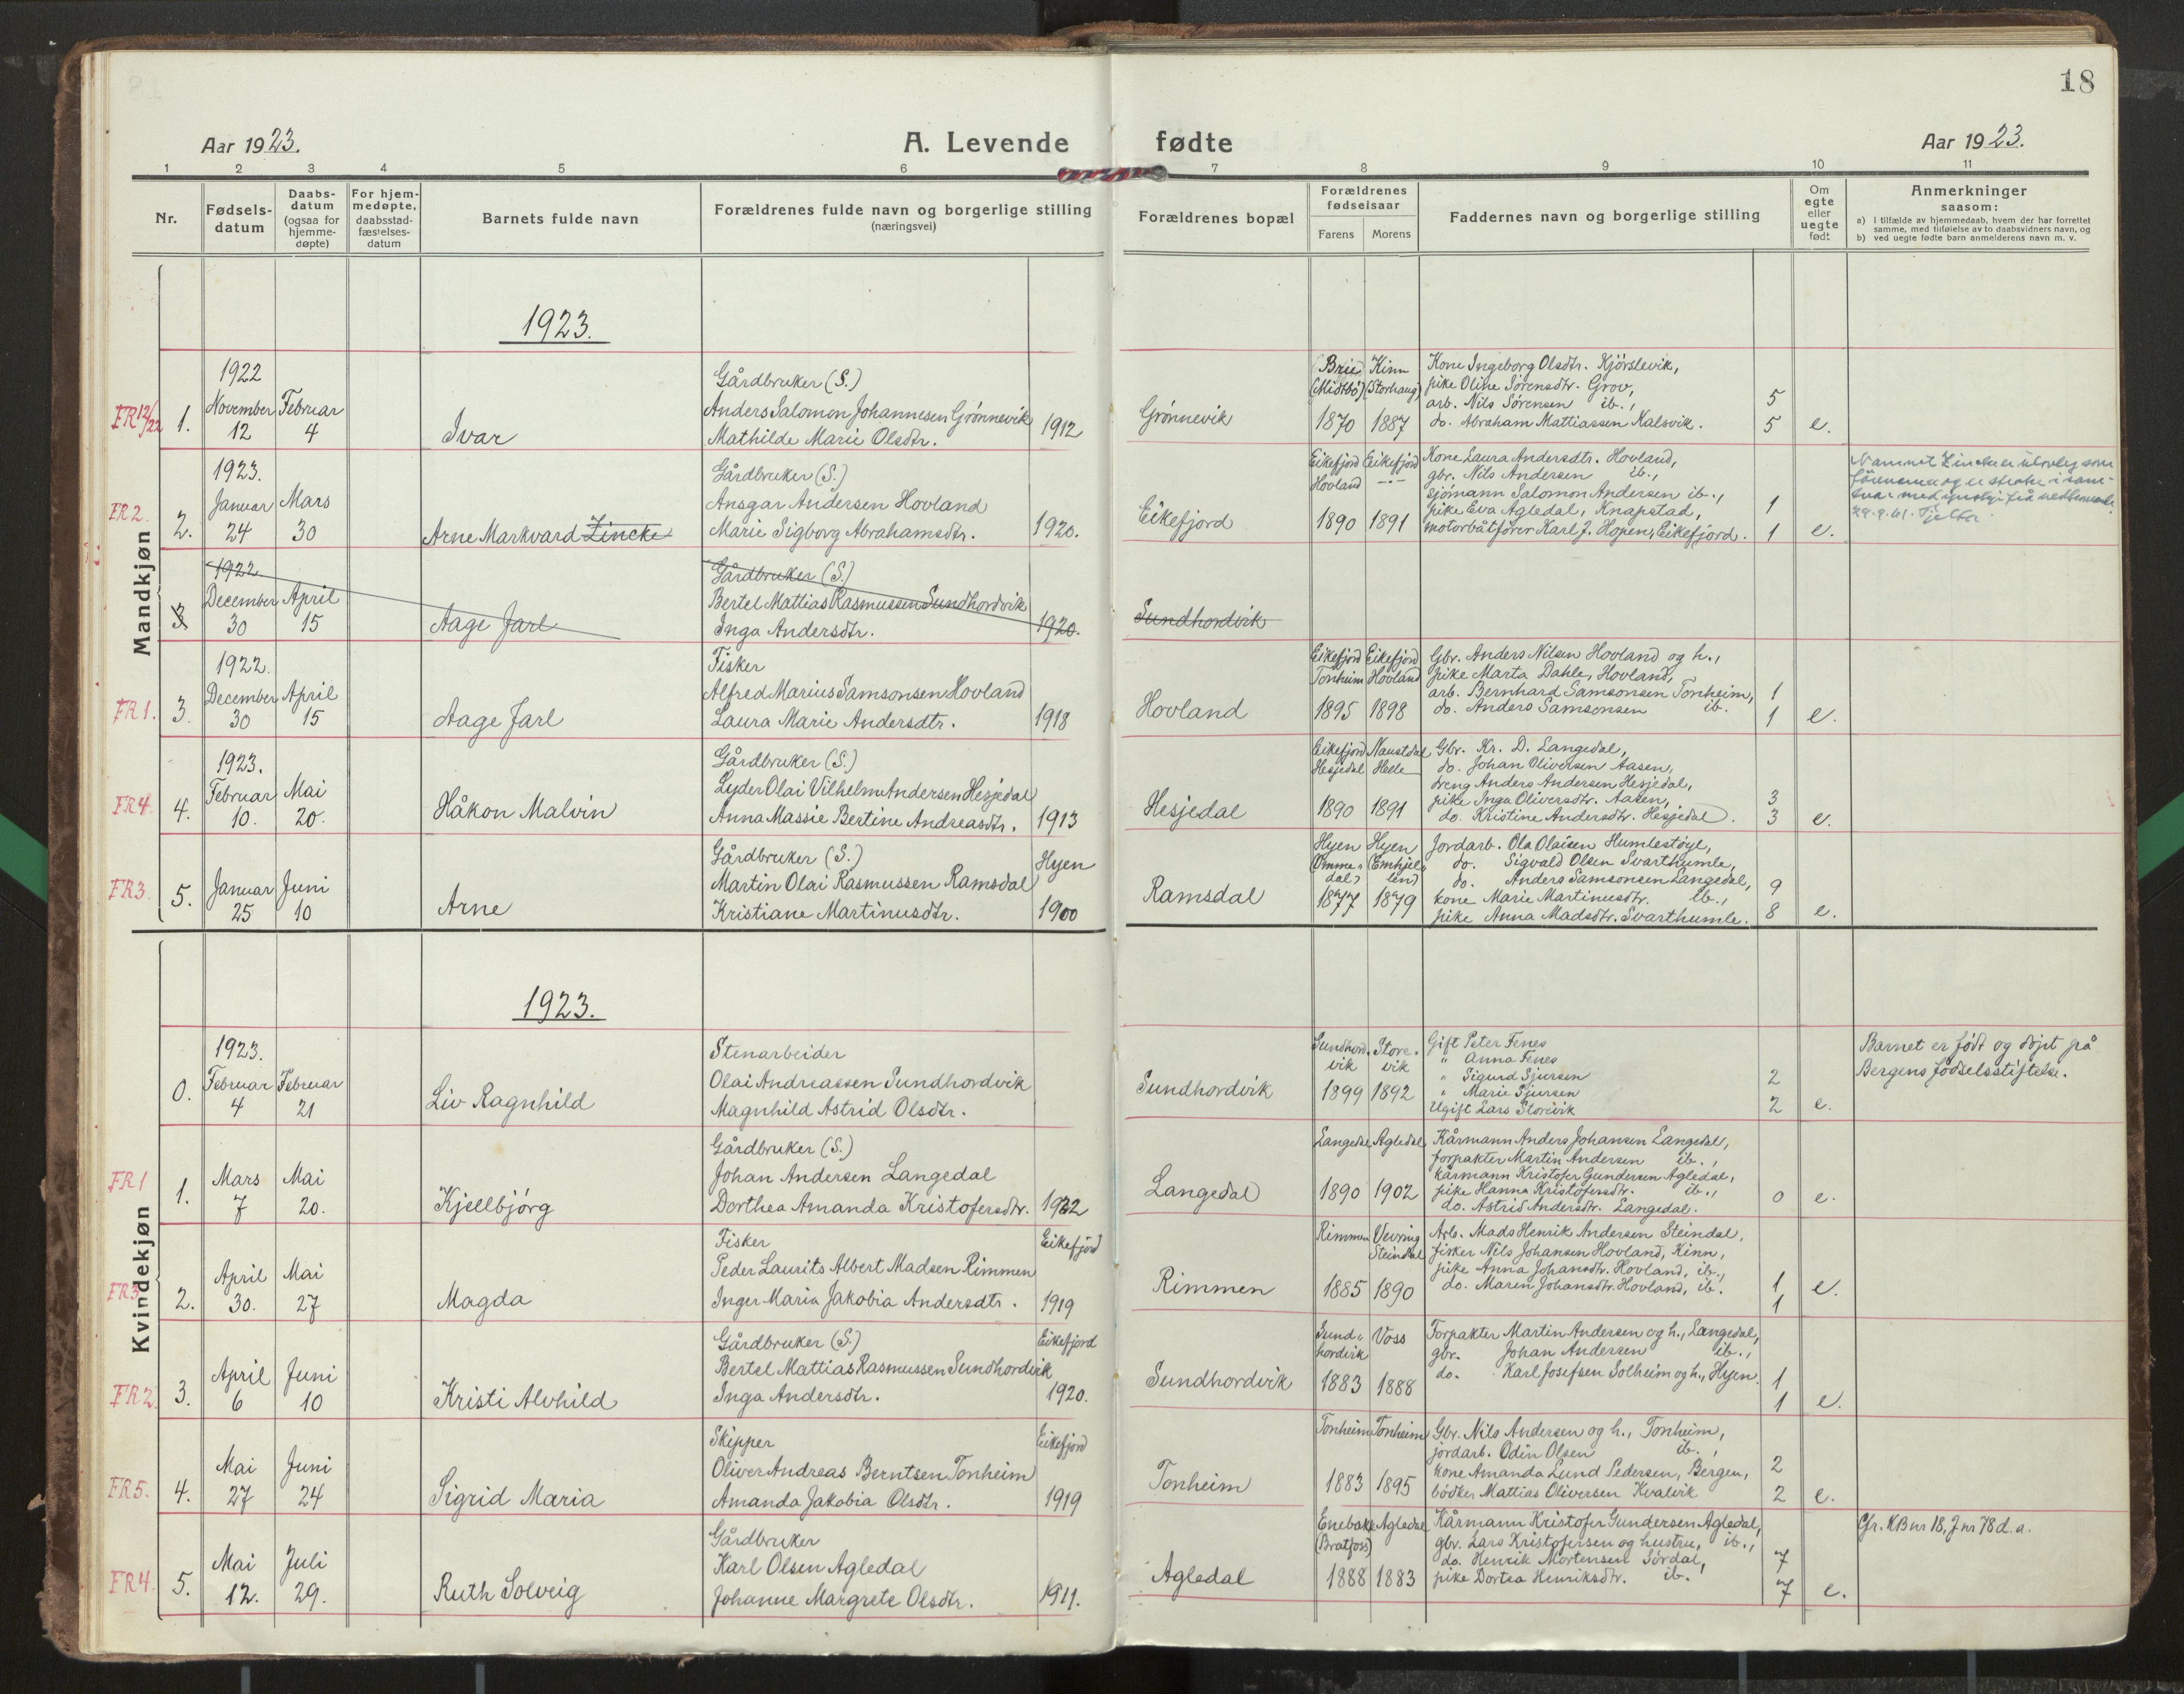 18
Aar 1923.
A. Levende fødte
Aar 1923.
1 2 3 4 5 6 7 8 9 10 11
Nr.
Fødsels-
datum
Daabs-
datum
(ogsaa for
hjemme-
døpte)
For hjem-
medøpte,
daabsstad-
fæstelses-
datum
Barnets fulde navn
Forældrenes fulde navn og borgerlige stilling
(næringsvei)
Forældrenes bopæl
Forældrenes
fødselsaar
Farens Morens
Faddernes navn og borgerlige stilling
Om
egte
eller
uegte
født
Anmerkninger
saasom:
a) i tilfælde av hjemmedaab, hvem der har forrettet
samme, med tilføielse av to daabsvidners navn, og
b) ved uegte fødte barn anmelderens navn m. v.
Mandkjøn
1923.
FR 12/22
1.
1922
November
12
Februar
4
Ivar
Gårdbruker (S.)
Anders Salomon Johannesen Grønnevik
Mathilde Marie Olsdtr. 1912
Grønnevik
(Brie
(Midtbö)
1870
Kinn
(Storhaug)
1887
Kone Ingeborg Olsdtr. Hjörslevik,
pike Oline Sørensdtr. Grov,
arb. Nils Sørensen ib.,
do. Abraham Mattiassen Kalsvik.
5
5
e.
FR 2.
2.
1923.
Januar
24
Mars
30
Arne Markvard Zincke
Gårdbruker (S.)
Ansgar Andersen Hovland
Marie Sigborg Abrahamsdtr. 1920.
Eikefjord
Eikefjord
Hovland
1890
Eikefjord
-"-
1891
Kone Laura Andersdtr. Hovland,
gbr. Nils Andersen ib.,
sjömann Salomon Andersen ib.,
pike Eva Agledal, Knapstad,
motorbåtfører Karl J. Hopen, Eikefjord.
1
1
e.
Navnet Zincke er ulovleg som
førenamn og er stroke i sam-
svar med
29.9.61. Tjelta
3
1922
December
30
April
15
Aage Jarl
Gårdbruker (S.)
Bertel Mattias Rasmussen Sundhordvik
Inga Andersdtr. 1920.
Sundhordvik
FR 1.
3.
1922.
December
30
April
15
Aage Jarl
Fisker
Alfred Marius Samsonsen Hovland
Laura Marie Andersdtr. 1918
Hovland
Eikefjord
Tonheim
1895
Eikefjord
Hovland
1898
Gbr. Anders Nilsen Hovland og h.,
pike Marta Dahle, Hovland,
arb. Bernhard Samsonsen Tonheim,
do. Anders Samsonsen ib.
1
1
e.
FR 4.
4.
1923.
Februar
10.
Mai
20.
Håkon Malvin
Gårdbruker (S.)
Lyder Olai Vilhelm Andersen Hesjedal
Anna Massie Bertine Andreasdtr. 1913
Hesjedal
Eikefjord
Hesjedal
1890
Naustdal
Helle
1891
Gbr. Kr. D. Langedal,
do. Johan Oliversen Aasen,
dreng Anders Andersen Hesjedal,
pike Inga Oliversdtr. Aasen,
do. Kristine Andersdtr. Hesjedal.
3
3
e.
FR 3.
5.
Januar
25
Juni
10
Arne
Gårdbruker (S.)
Martin Olai Rasmussen Ramsdal
Kristiane Martinusdtr.
Hyen
1900
Ramsdal
Hyen
(Omme-
dal)
1877
Hyen
(Emhjel-
len)
1879
Jordarb. Ola Olaisen Humlestøyl,
do. Sigvald Olsen Svarthumle,
do. Anders Samsonsen Langedal,
kone Marie Martinusdtr. ib.,
pike Anna Madsdtr. Svarthumle.
9
8
e.
Kvindekjøn
1923.
0.
1923.
Februar
4
Februar
21
Liv Ragnhild
Stenarbeider
Olai Andreassen Sundhordvik
Magnhild Astrid Olsdtr.
Sundhordvik
Sundhord-
vik
1899
Store-
vik
1892
Gift Peter Fenes
" Anna Fenes
" Sigurd Sjursen
" Marie Sjursen
Ugift Lars Storevik
2
2
e.
Barnet er født og døpt på
Bergens fødselsstiftelse.
FR 1
1.
Mars
7
Mai
20.
Kjellbjörg
Gårdbruker (S.)
Johan Andersen Langedal
Dorthea Amanda Kristofersdtr. 1922
Langedal
Langedal
1890
Agledal
1902
Kårmann Anders Johansen Langedal,
forpakter Martin Andersen ib.,
kårmann Kristofer Gundersen Agledal,
pike Hanna Kristofersdtr. ib.,
do. Astrid Andersdtr. Langedal.
0
e.
FR 3
2.
April
30.
Mai
27
Magda
Fisker
Peder Laurits Albert Madsen Rimmen
Inger Maria Jakobia Andersdtr.
Eikefjord
1919
Rimmen
Rimmen
1885
Vevring
Steindal
1890
Arb. Mads Henrik Andersen Steindal,
fisker Nils Johansen Hovland, Kinn,
pike Anna Johansdtr. Hovland, ib.,
do. Maren Johansdtr. Hovland, ib.
1
1
e.
FR 2.
3.
April
6
Juni
10
Kristi Alvhild
Gårdbruker (S.)
Bertel Mattias Rasmussen Sundhordvik
Inga Andersdtr.
Eikefjord
1920.
Sundhordvik
Sund-
hordvik
1883
Voss
1888
Forpakter Martin Andersen og h., Langedal,
gbr. Johan Andersen ib.,
do. Karl Josefsen Solheim og h., Hyen.
1
1
e.
FR 5.
4.
Mai
27
Juni
24
Sigrid Maria
Skipper
Oliver Andreas Berntsen Tonheim
Amanda Jakobia Olsdtr.
Eikefjord
1919
Tonheim
Tonheim
1883
Tonheim
1895
Gbr. Nils Andersen og h., Tonheim,
jordarb. Odin Olsen ib.,
kone Amanda Lund Pedersen, Bergen,
bödker Mattias Oliversen Kvalvik
2
2
e.
FR 4.
5.
Mai
12.
Juli
29.
Ruth Solveig
Gårdbruker
Karl Olsen Agledal
Johanne Margrete Olsdtr. 1911.
Agledal
Enebakk
(Bratfoss)
1888
Agledal
1883
Kårmann Kristofer Gundersen Agledal,
gbr. Lars Kristofersen og hustru, ib.,
do. Henrik Mortensen Sørdal,
pike Dortea Henriksdtr. ib.
7
7
e.
Cfr. KB nr 18, J nr 78 d. a.